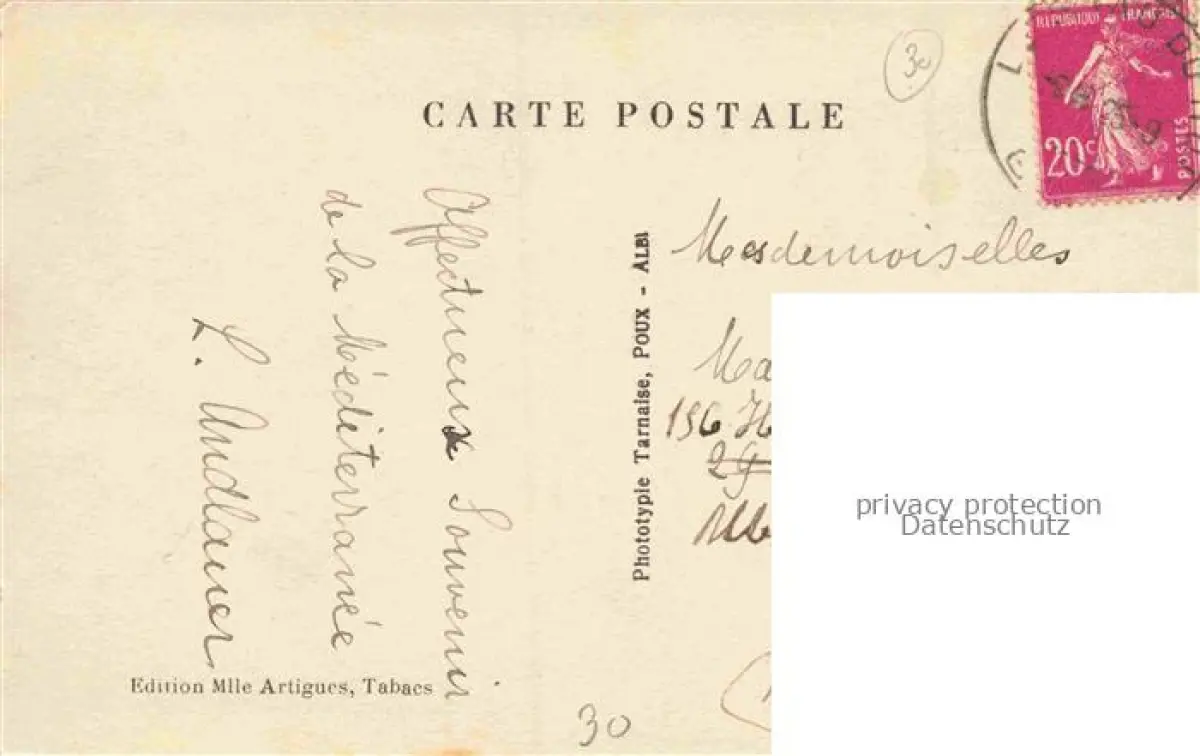 CARTE POSTALE
30
REPUBLIQUE FRANÇAISE
20c
POSTES
Affectueux Souvenir
de la Méditerranée
L. Andlauer
Phototypie Tarnaise, POUX - ALBI
Mesdemoiselles
Ma
156
29
Edition Mlle Artigues, Tabacs
30
privacy protection
Datenschutz